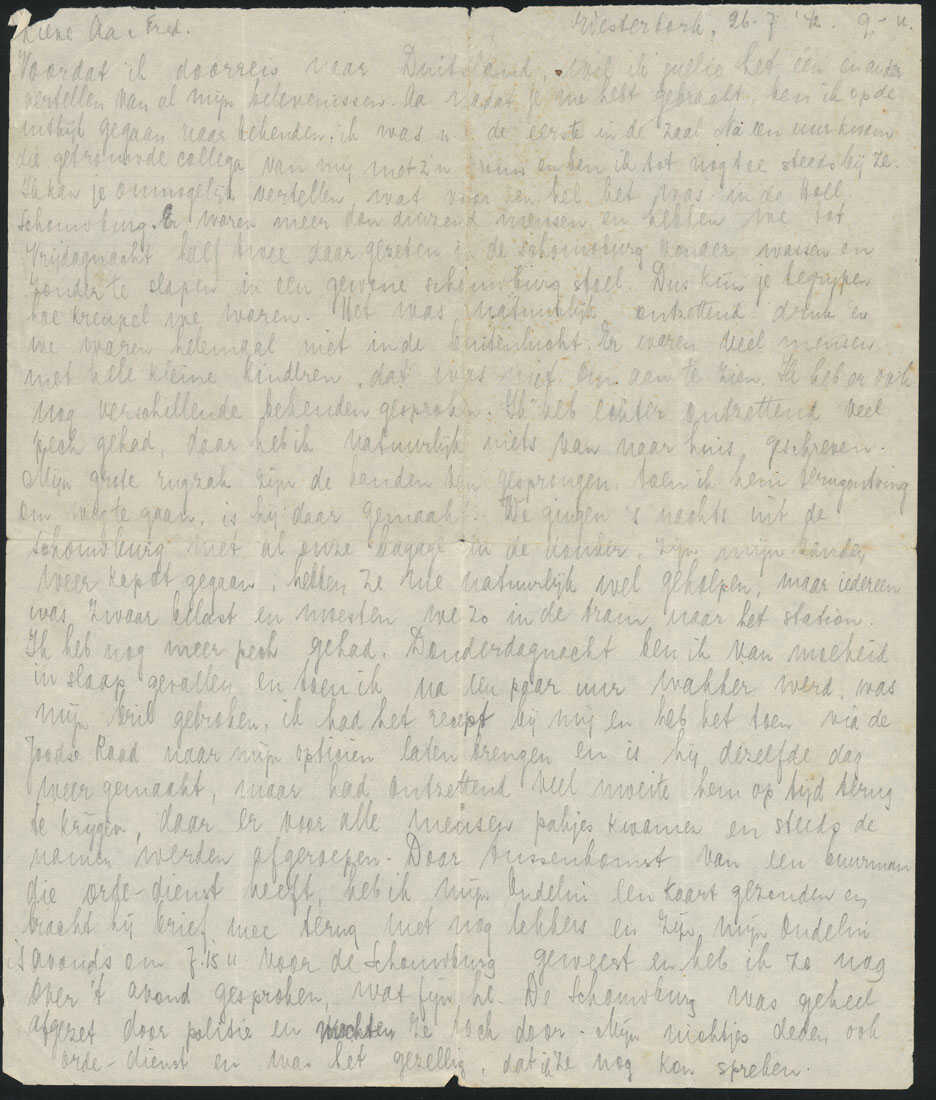 Lieve Aa & Fred.
Westerbork, 26-7 '42 9,- u.
Voordat ik doorreis naar Duitsland, wil ik jullie het één en ander
vertellen van al mijn belevenissen. Aa nadat je me hebt gebracht, ben ik op de
gegaan naar bekenden. ik was n.l. de eerste in de zaal. Na een uur kwam
die getrouwde collega van mij met z'n en ben ik tot nog toe steeds bij ze.
Ik kan je onmogelijk vertellen wat voor een hel het was in de Holl.
Schouwburg. Er waren meer dan duizend mensen en hebben we tot
Vrijdagnacht half twee daar gezeten in de schouwburg zonder wassen en
zonder te slapen in een gewone schouwburg stoel. Dus kun je begrijpen
hoe kreupel we waren. Het was natuurlijk ontzettend druk en
we waren helemaal niet in de buitenlucht. Er waren veel mensen
met hele kleine kinderen, dat was niet om aan te zien. Ik heb er ook
nog verschillende bekenden gesproken. Ik heb echter ontzettend veel
pech gehad, daar heb ik natuurlijk niets van naar huis geschreven.
Mijn grote rugzak zijn de banden van gesprongen, toen ik hem terugontving
om weg te gaan, is hij daar gemaakt. We gingen 's nachts uit de
Schouwburg met al onze bagage in de donker, zijn mijn banden
weer kapot gegaan, hebben ze me natuurlijk wel geholpen, maar iedereen
was zwaar belast en moesten we zo in de tram naar het station.
Ik heb nog meer pech gehad. Donderdagnacht ben ik van moeheid
in slaap gevallen en toen ik na een paar uur wakker werd, was
mijn bril gebroken, ik had het recept bij mij en heb het toen via de
Joodse Raad naar mijn opticien laten brengen en is hij dezelfde dag
weer gemaakt, maar had ontzettend veel moeite hem op tijd terug
te krijgen, daar er voor alle mensen pakjes kwamen en steeds de
namen werden afgeroepen. Door tussenkomst van een buurman
die orde-dienst heeft, heb ik mijn Ondelin een kaart gezonden en
bracht hij brief mee terug met nog lekkers en zijn mijn Ondelin
's avonds om 7.15 u voor de Schouwburg geweest en heb ik ze nog
over 't avond gesproken, wat fijn hè. De Schouwburg was geheel
afgezet door politie en mochten ze toch door. Mijn nichtjes deden ook
orde-dienst en was het gezellig, dat ik ze nog kon spreken.